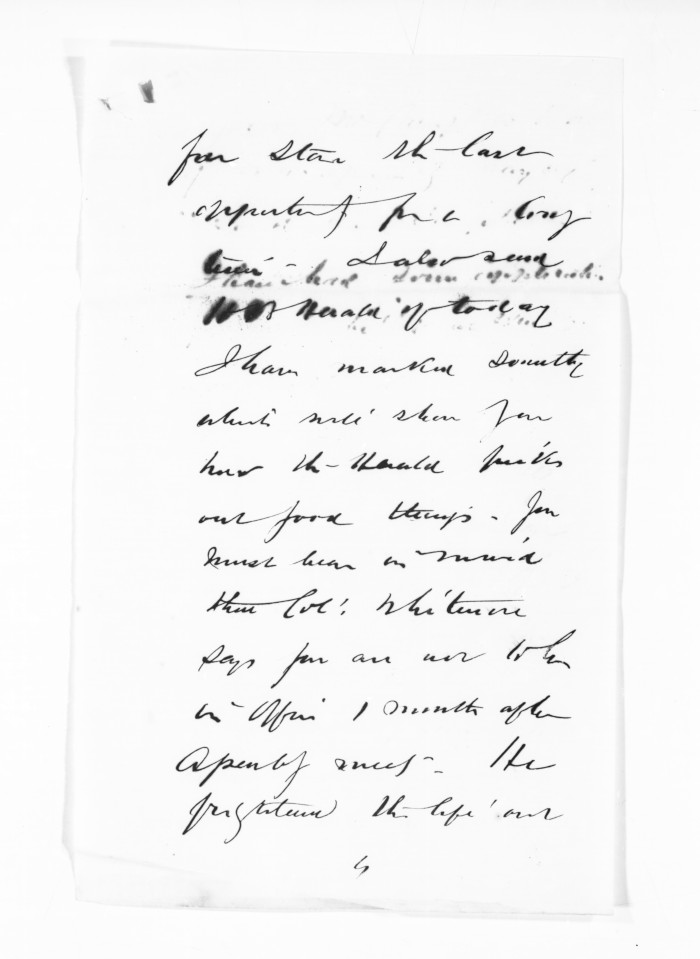 for Star the last
opportunity for a long
time - I also send
Herald of today
I have marked something
which will show you
how the Herald picks
out good things - You
must bear in mind
that Col. Whitmore
says you are not to be
in Office 1 month after
Assembly meets - He
frightened the life out